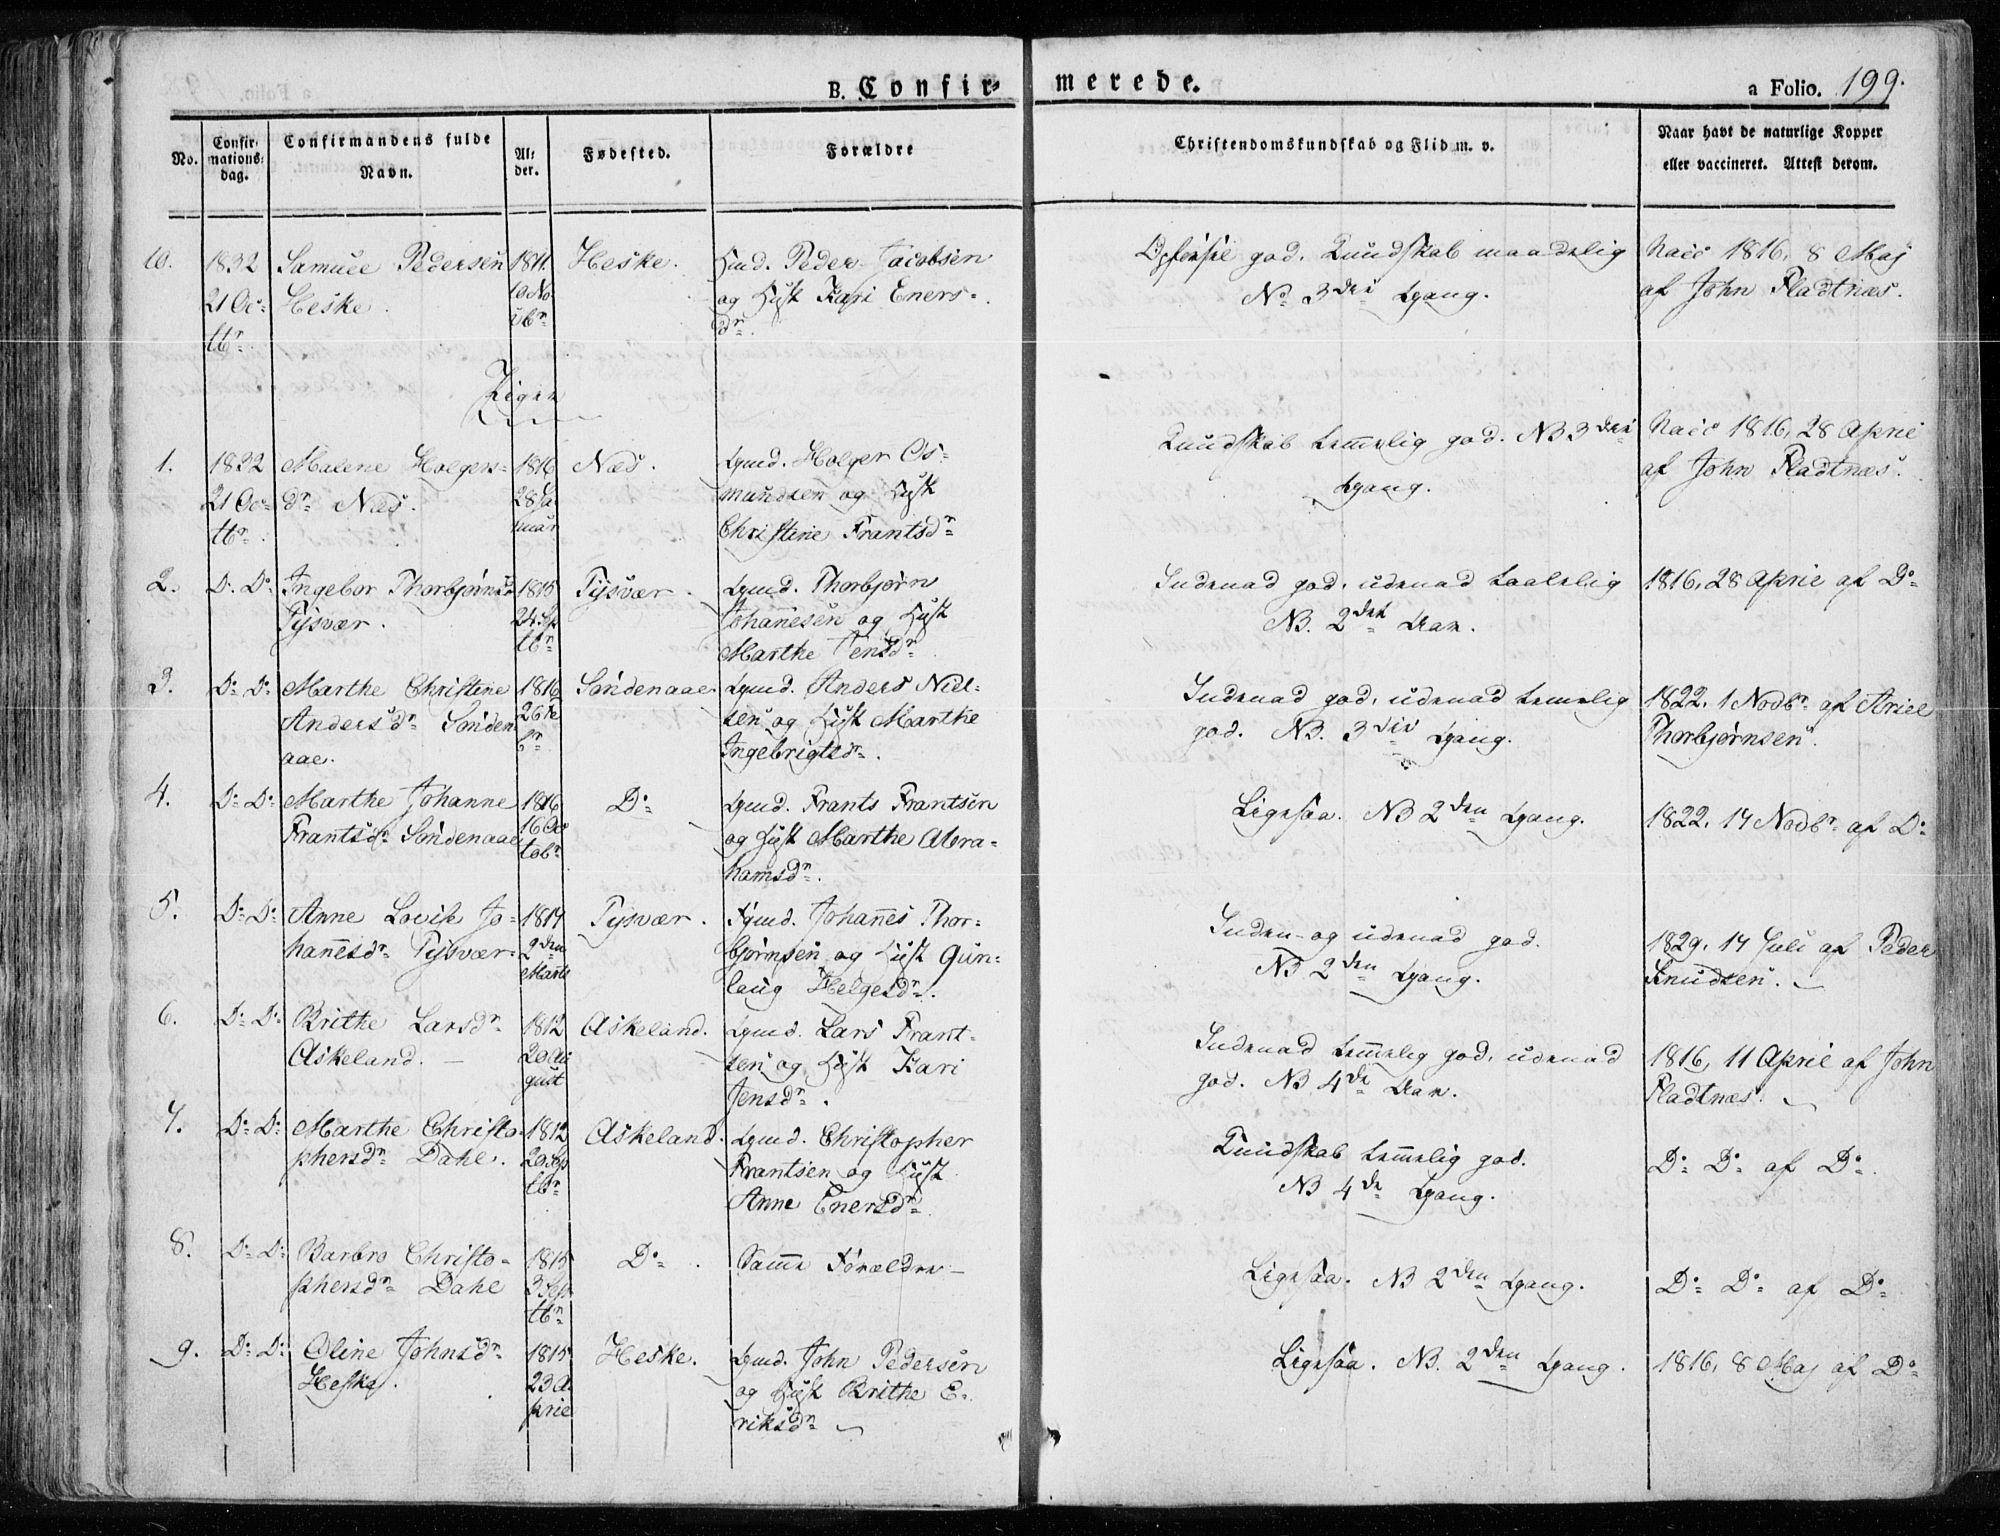 B. Confirmerede.
a Folio. 199.
No.
Confirmations-
dag.
Confirmandens fulde
Navn.
Al-
der.
Fødested.
Forældre
Christendomskundskab og Flid m. v.
Naar havt de naturlige Kopper
eller vaccineret. Attest derom.
10.
1832
21 Oc-
tbr
Samuel Pedersen
Heske.
1811.
10 No-
vbr
Heske.
Peder Jacobsen
og Hust Kari Eners-
dr
god. Kundskab maadelig
No 3die Gang.
Vacc 1816, 8 Maj
af John Fladtnæs.
Piger
1.
1832
21 Oc-
tbr.
Malene Holgers-
dr Næs.
1816
28 Ja
nuar
Næs.
Gmd. Holger Os-
mundsen og Hust
Christine Frantsdr
Kundskab temmelig god. NB 3die
Gang.
Vacc 1816, 28 April
af John Fladtnæs.
2.
D: Do
Ingebor Thorbjørnsd
Tysvær.
1815
24 Sep
tbr
Tysvær.
Gmd. Thorbjørn
Johannesen og Hust
Marthe Jensdr
Indenad god, udenad taalelig
NB. 2den Gang.
1816, 28 April af Do
3.
Do Do
Marthe Christine
Andersdr Søndenaae.
1816
26
br
Søndenaae.
Gmd. Anders Niel-
sen og Hust Marthe
Ingebrigtsdr.
Indenad god, udenad temelig
god. NB. 3die Gang.
1822, 1 Novbr af Ariel
Thorbjørnsen.
4.
Do Do
Marthe Johanne
Frantsdr Søndenaae
1816
16 Oc
tobr
Do
Gmd. Frants Frantsen
og Hust Marthe Abra-
hamsdr.
Ligesaa. NB 2den Gang.
1822, 17 Novbr af Do
5.
Do Do
Anne Lovise Jo-
hannesdr Tysvær.
1817
2den
Marts
Tysvær.
Gmd. Johannes Thor-
bjørnsen og Hust Gun-
laug Helgesdr.
Inden- og udenad god.
NB 2den Gang.
1829, 17 Juli af Peder
Knudsen.
6.
Do Do
Brithe Larsdr
Askeland.
1812
20 Au
gust
Askeland.
Gmd. Lars Frant-
sen og Hust Kari
Jensdr.
Indenad temmelig god, udenad
god. NB 4de Gang.
1816, 11 April af John
Fladtnæs.
7.
Do Do
Marthe Christo-
phersdr Dahl.
1812
20 Sep
tbr
Askeland.
Gmd. Christopher
Frantsen og Hust
Anne Enersdr
Kundskab temmelig god.
NB 4de Gang.
Do Do af Do
8.
Do Do
Barbro Christo-
phersdr Dahl
1815
3 Sep
tbr
Do
Samme Forældre
Ligesaa. NB 2den Gang.
Do Do af Do
9.
Do Do
Oline Johnsdr
Heske.
1815
23 A-
pril
Heske.
Gmd. John Pedersen
og Hust Brithe E-
riksdr
Ligesaa. NB. 2den Gang.
1816, 8 Maj af Do